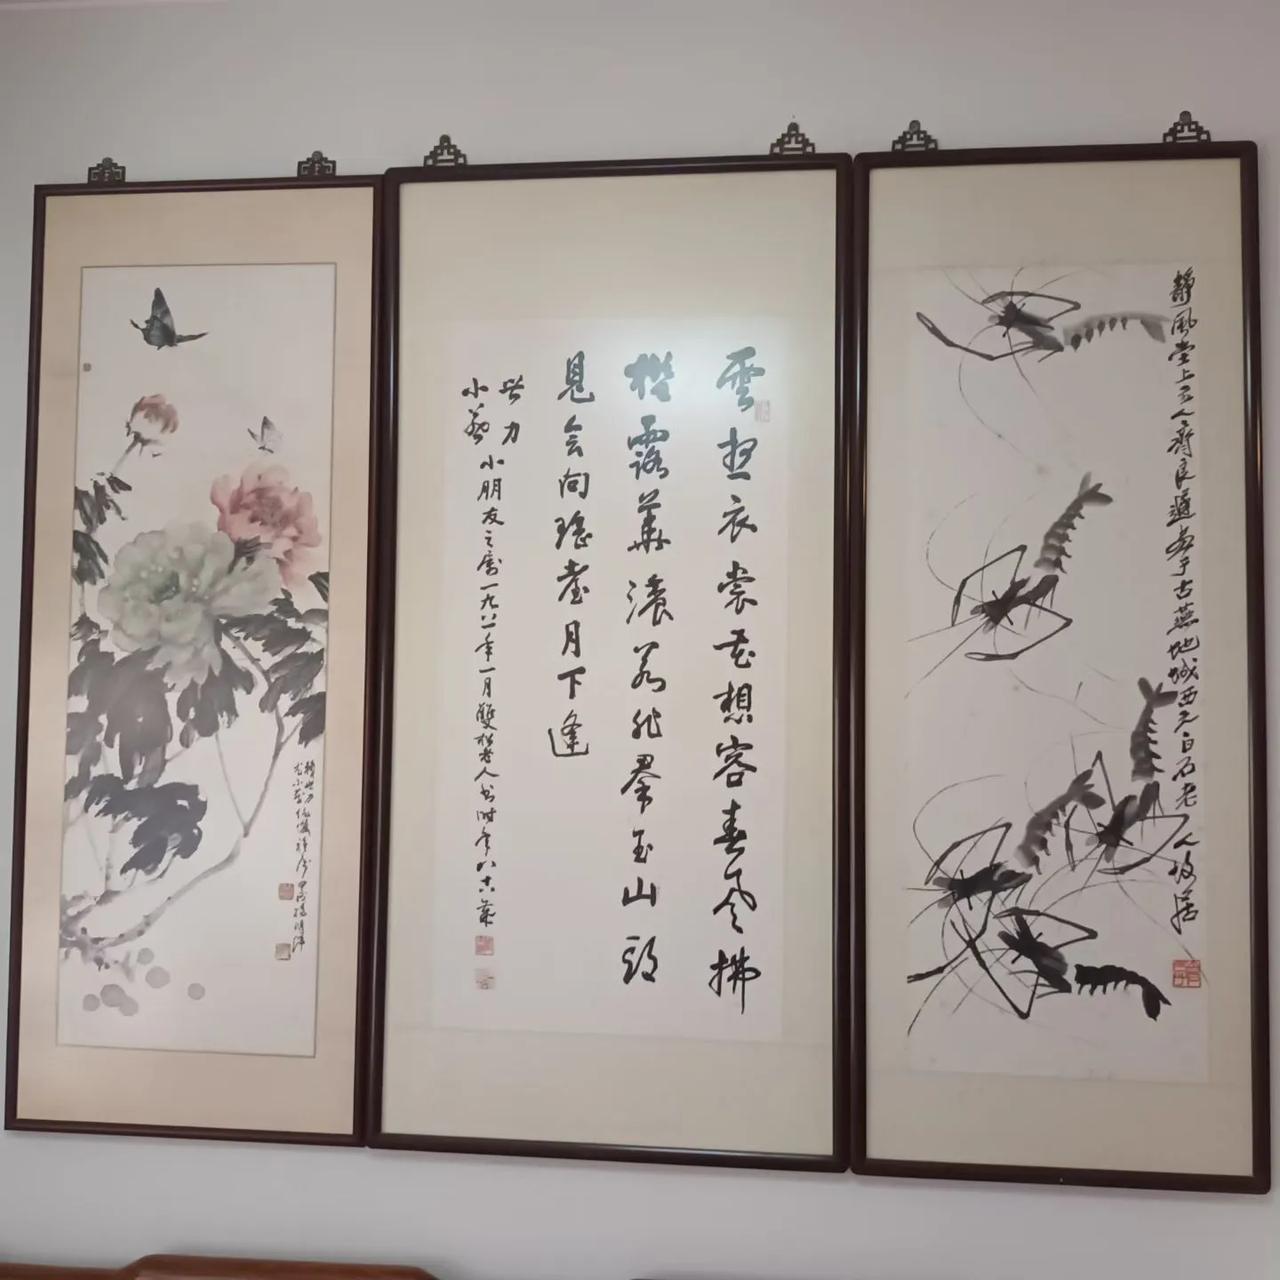 靜風堂上主人齊良遲畫于古燕地城西先白石老人故居
雲想衣裳花想容春風拂
檻露華濃若非羣玉山頭
見會向瑤臺月下逢
世力
小朋友之屬一九八一年一月雙松老人書時年八十六歲